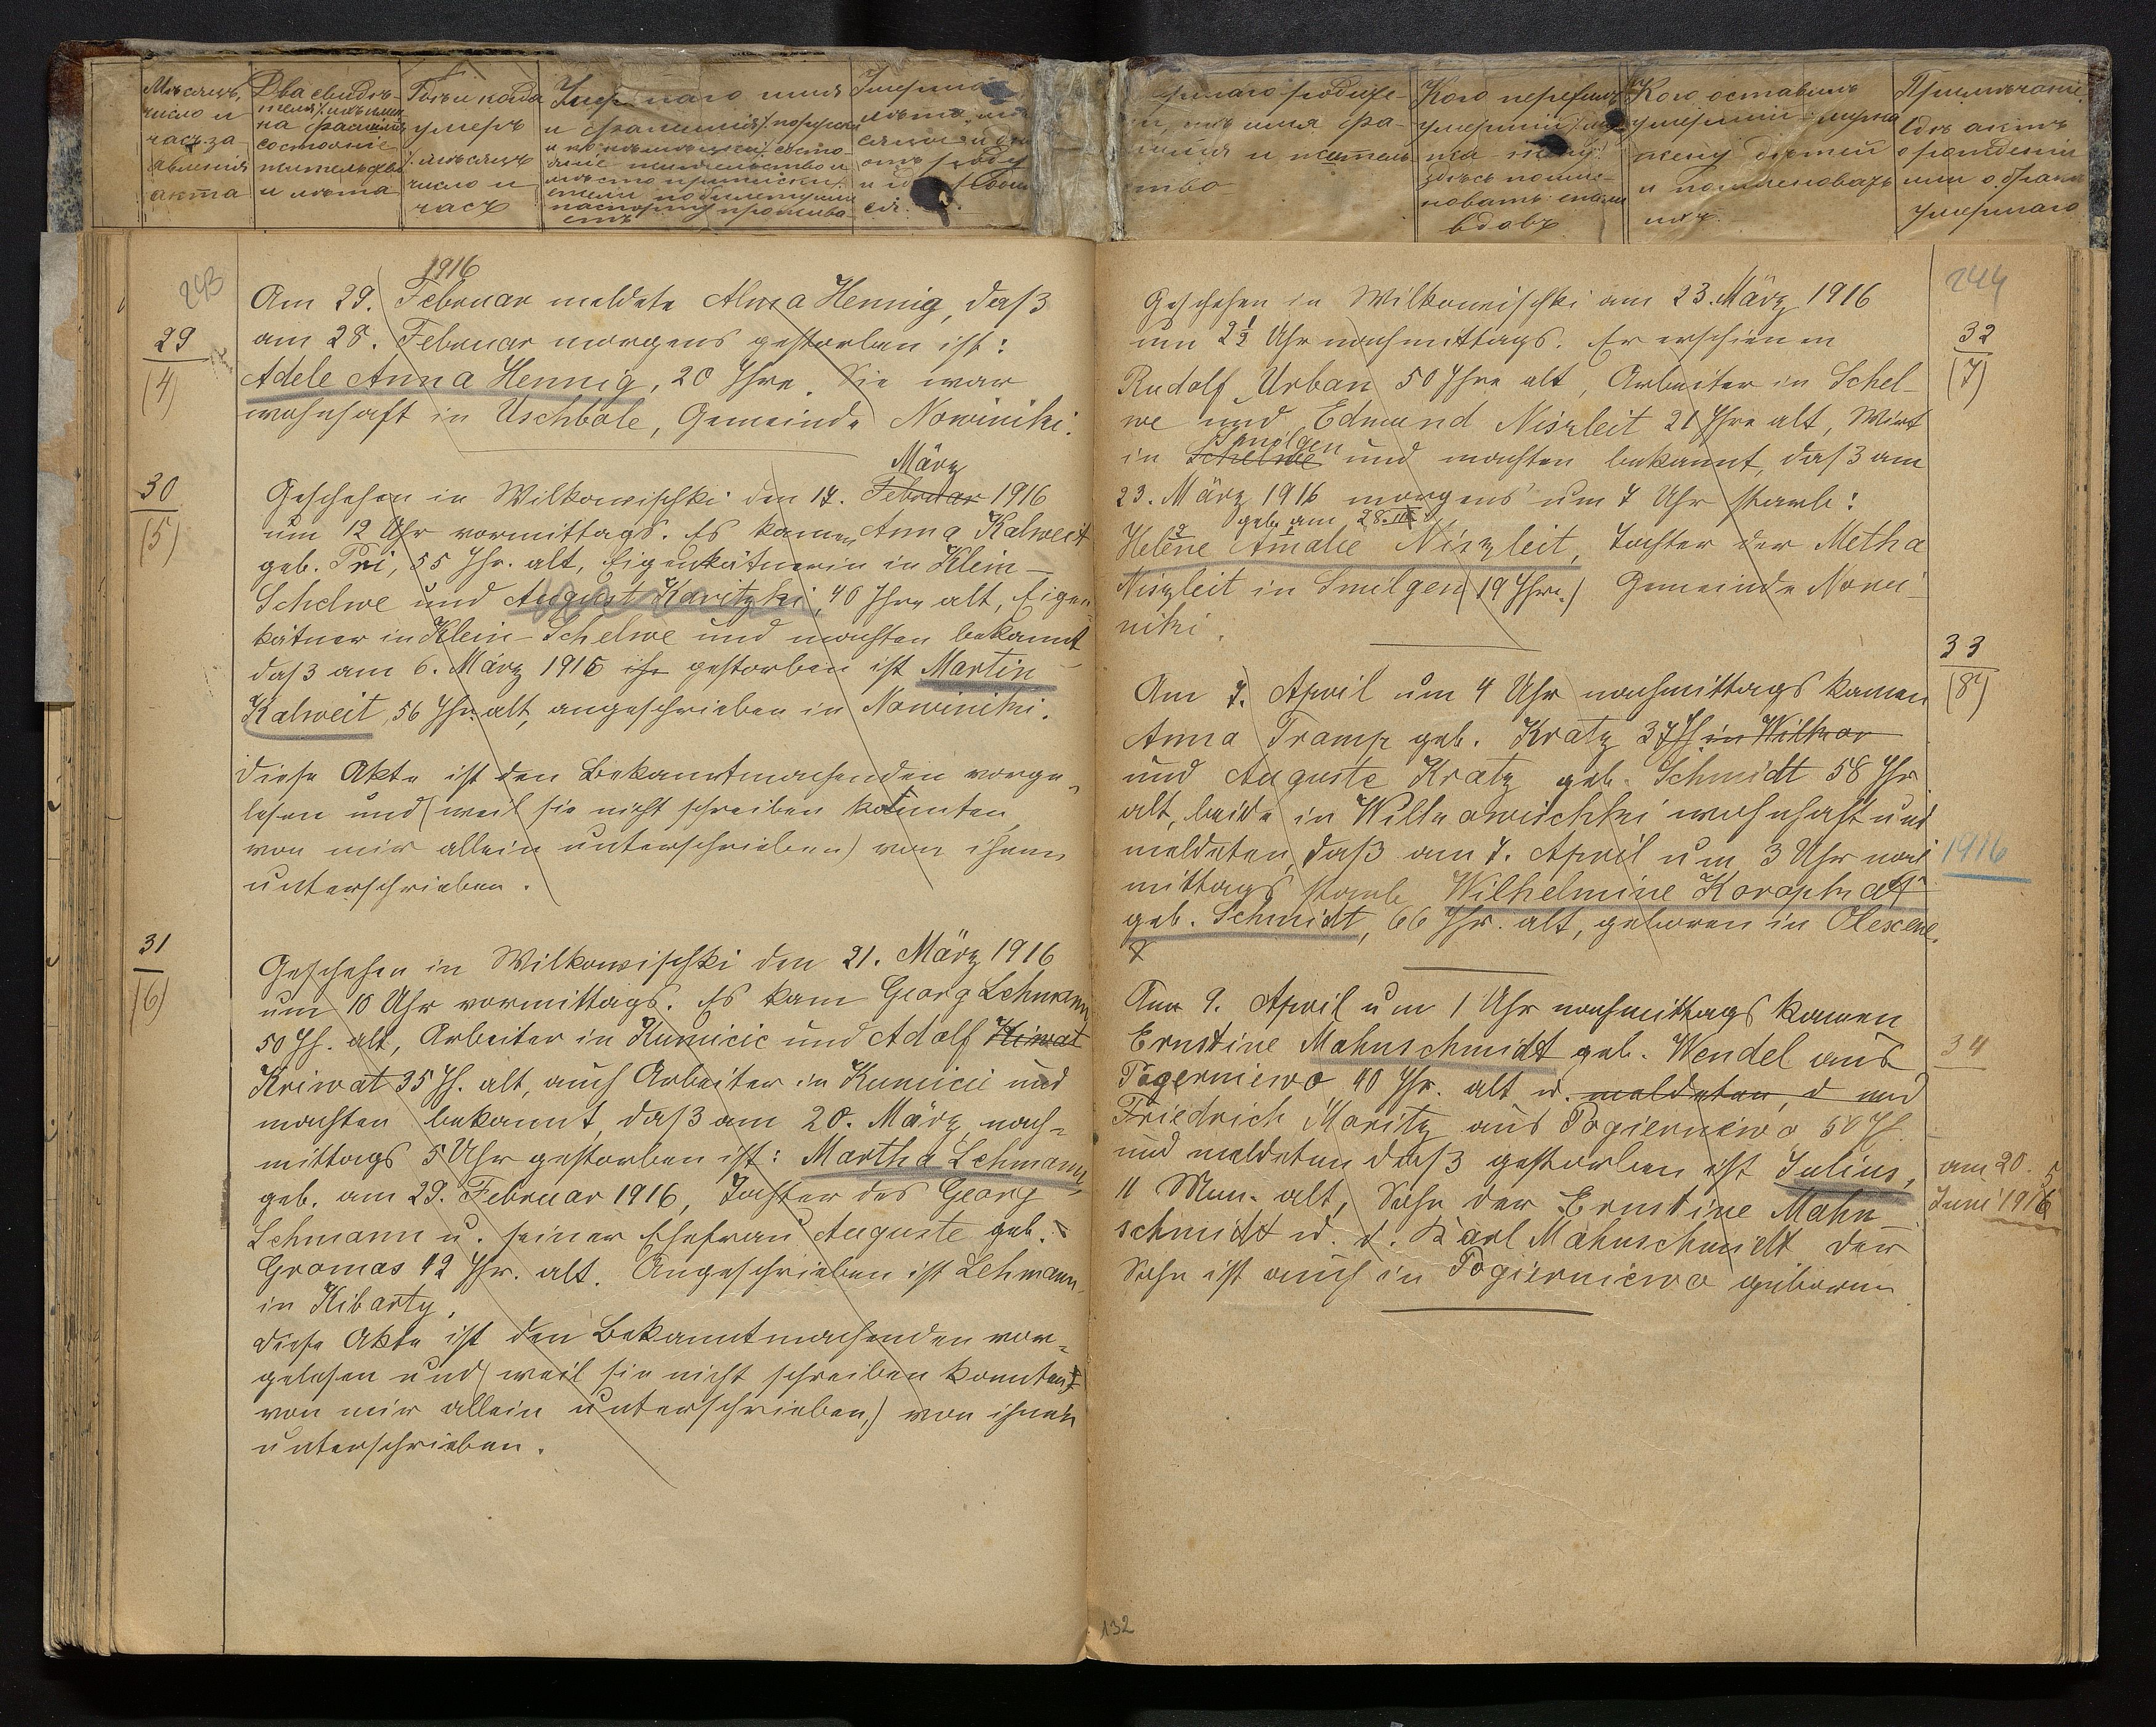 Мѣсяцъ,
число и
часъ за
явленія
акта
Два свидѣ-
теля, ихъ имя
на фамилія
состояніе
жительство
и лѣта
Годъ и когда
умеръ
/мѣсяцъ
число и
часъ
имя
и фамилія /по русски
и по нѣмецки/ состо-
яніе жительство и
мѣсто приписки,
лѣта
родите-
имя фа-
милія и житель
ство
Кого пережилъ
умершій
здѣсь поиме-
новать
вдовъ
Кого оставилъ
умершій
жену дѣтей
и поименовать
ихъ.
Примѣчаніе
актъ
о рожденіи
или о бракѣ
умершаго
243
1916
29
(4)
Am 29. Februar meldete Alma Hennig, daß
am 28. Februar morgens gestorben ist:
Adele Anna Hennig, 20 Jhre. Sie war
wohnhaft in Uschbole, Gemeinde Nowiniki.
30
(5)
März
Geschehen in Wilkowischki den 17. Februar 1916
um 12 Uhr vormittags. Es kamen Anna Kalweit
geb. Pri, 55 Jhr. alt, Eigenkätnerin in Klein-
Schelwe und August Kavitzki, 40 Jhre alt, Eigen-
kätner in Klein-Schelwe und machten bekannt
daß am 6. März 1916 gestorben ist Martin
Kalweit, 56 Jhr. alt, angeschrieben in Nowiniki.
Diese Akte ist den Bekanntmachenden vorge-
lesen und (weil sie nicht schreiben konnten
von mir allein unterschrieben) von ihnen
unterschrieben.
31
(6)
Geschehen in Wilkowischki den 21. März 1916
um 10 Uhr vormittags. Es kam Georg Lehmann
50 Jh. alt, Arbeiter in Kumicic und Adolf
Kriwat 35 Jh. alt, auch Arbeiter in Kumicic und
machten bekannt, daß am 20. März nach-
mittags 5 Uhr gestorben ist: Martha Lehmann,
geb. am 29. Februar 1916, Tochter des Georg
Lehmann u. seiner Ehefrau Auguste geb.
Gromas 42 Jhr. alt. Angeschrieben ist Lehmann
in Kibarty.
Diese Akte ist den Bekanntmachenden vor-
gelesen und (weil sie nicht schreiben konnten
von mir allein unterschrieben,) von ihnen
unterschrieben.
244
32
(7)
Geschehen in Wilkowischki am 23. März 1916
um 2½ Uhr nachmittags. Er erschienen
Rudolf Urban 50 Jhre alt, Arbeiter in Schel-
we und Edmund Niszleit 21 Jhre alt, Wirt
Smolgen
in Schelwe und machten bekannt, daß am
23. März 1916 morgens um 7 Uhr starb:
geb. am 28. III
Helene Amalie Niszleit, Tochter der Metha
Niszleit in Smilgen (19 Jhre.) Gemeinde Nowi-
niki.
33
(8)
Am 7. April um 4 Uhr nachmittags kamen
Anna Tramp geb. Kratz 37 Jh in Wilkow
und Auguste Kratz geb. Schmidt 58 Jhr
alt, beide in Wilkowischki wohnhaft und
meldeten, daß am 7. April um 3 Uhr nach
1916
mittags starb Wilhelmine
geb. Schmidt, 66 Jhr. alt, geboren in
34
Am 9. April um 1 Uhr nachmittags kamen
Ernstine Mahnschmidt geb. Wendel aus
Pogerniewo 40 Jhr. alt u. meldeten, d und
Friedrich Moritz aus Pogierniewo 50 Jh.
und meldeten daß gestorben ist Julius,
am 20.
11 Mon. alt, Sohn der Ernstine Mahn-
Juni 1915
schmidt u. d. Karl Mahnschmidt der
Sohn ist auch in Pogierniewo geboren
132